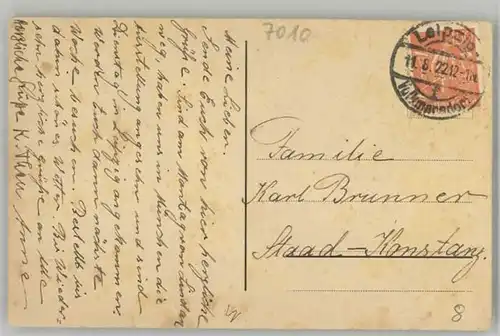 7010
Leipzig
11.8.22.12-1N.
Volkmarsdorf
Meine Lieben.
Sende Euch von hier herzliche
Grüße. Sind am Montag von Lindau
weg, haben uns in München die
Ausstellung angesehn und sind
Dienstag in Leipzig angekommen.
Werden Euch dann nächste
Woche besuchen.
Wetter. Auf Wieder-
sehn herzliche Grüße an alle
Anne
Herzliche Grüße K.
Familie
Karl Brunner
Staad-Konstanz
8